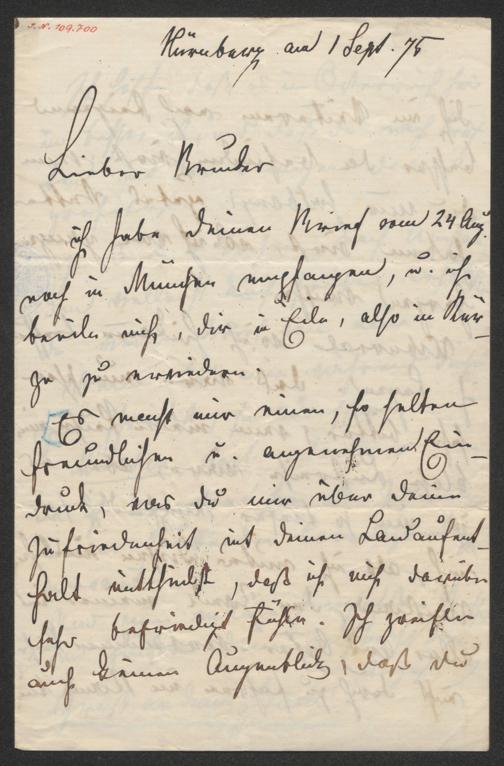 J.N. 109.700
Nürnberg am 1 Sept. 75
Lieber Bruder
ich habe deinen Brief vom 24 Aug.
noch in München empfangen, u. ich
beeile mich, dir in Eile, also in Kür-
ze zu erwiedern.
Es macht mir einen, so selten
freundlichen u. angenehmen Ein-
druck, was du mir über deine
Zufriedenheit mit deinen Landaufent-
halt mittheilst, daß ich mich darüber
sehr befriedigt fühle. Ich zweifle
auch keinen Augenblick, daß du